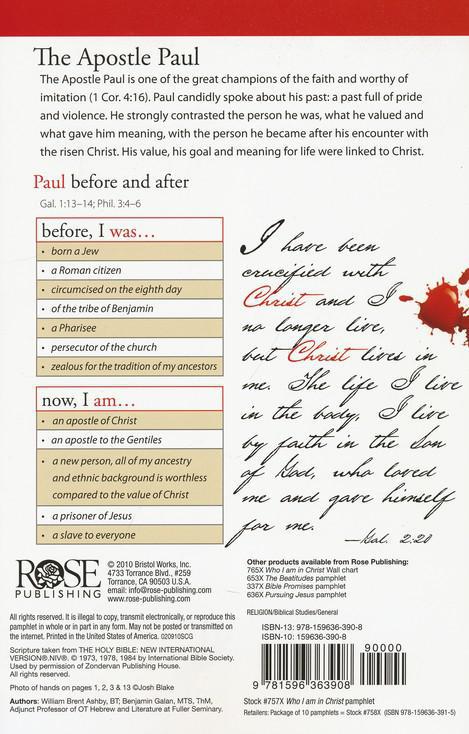 The Apostle Paul
The Apostle Paul is one of the great champions of the faith and worthy of
imitation (1 Cor. 4:16). Paul candidly spoke about his past: a past full of pride
and violence. He strongly contrasted the person he was, what he valued and
what gave him meaning, with the person he became after his encounter with
the risen Christ. His value, his goal and meaning for life were linked to Christ.
Paul before and after
Gal. 1:13–14; Phil. 3:4–6
before, I was...
• born a Jew
• a Roman citizen
• circumcised on the eighth day
• of the tribe of Benjamin
• a Pharisee
• persecutor of the church
• zealous for the tradition of my ancestors
now, I am...
• an apostle of Christ
• an apostle to the Gentiles
• a new person, all of my ancestry
and ethnic background is worthless
compared to the value of Christ
• a prisoner of Jesus
• a slave to everyone
I have been
crucified with
Christ and I
no longer live,
but Christ lives in
me. The life I live
in the body, I live
by faith in the Son
of God, who loved
me and gave himself
for me.
—Gal. 2:20
ROSE
PUBLISHING
© 2010 Bristol Works, Inc.
4733 Torrance Blvd., #259
Torrance, CA 90503 U.S.A.
email: info@rose-publishing.com
www.rose-publishing.com
All rights reserved. It is illegal to copy, transmit electronically, or reproduce this
pamphlet in whole or in part in any form. May not be posted or transmitted on
the internet. Printed in the United States of America. 020910SCG
Scripture taken from THE HOLY BIBLE: NEW INTERNATIONAL
VERSION®.NIV®. © 1973, 1978, 1984 by International Bible Society.
Used by permission of Zondervan Publishing House.
All rights reserved.
Photo of hands on pages 1, 2, 3 & 13 ©Josh Blake
Authors: William Brent Ashby, BT; Benjamin Galan, MTS, ThM,
Adjunct Professor of OT Hebrew and Literature at Fuller Seminary.
Other products available from Rose Publishing:
765X Who I am in Christ Wall chart
653X The Beatitudes pamphlet
337X Bible Promises pamphlet
636X Pursuing Jesus pamphlet
RELIGION/Biblical Studies/General
ISBN-13: 978-159636-390-8
ISBN-10: 159636-390-8
90000
9 781596 363908
Stock #757X Who I am in Christ pamphlet
Retailers: Package of 10 pamphlets = Stock #758X (ISBN 978-159636-391-5)